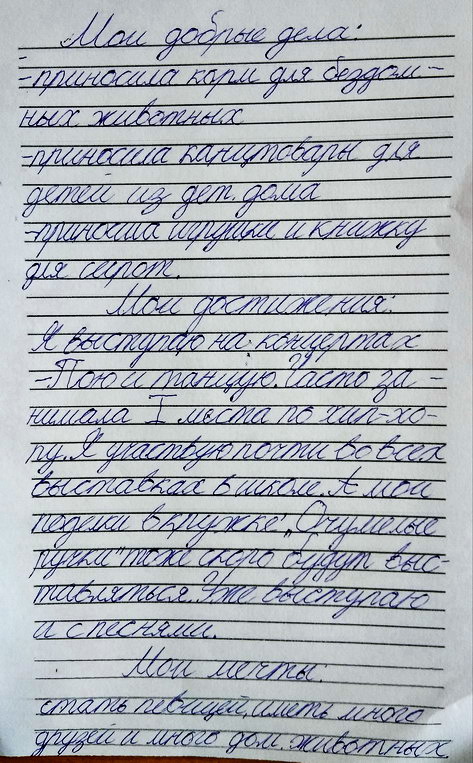 Мои добрые дела:
-приносила корм для бездом-
ных животных
-приносила канцтовары для
детей из дет. дома
-приносила игрушки и книжку
для сирот.
Мои достижения:
Я выступаю на концертах
-Пою и танцую. Часто за-
нимала I места по хип-хо-
пу. Я участвую почти во всех
выставках в школе. А мои
поделки в кружке „Очумелые
ручки" тоже скоро будут выс-
тавляться. Уже выступаю
и с песнями.
Мои мечты:
стать певицей, иметь много
друзей и много дом. животных.